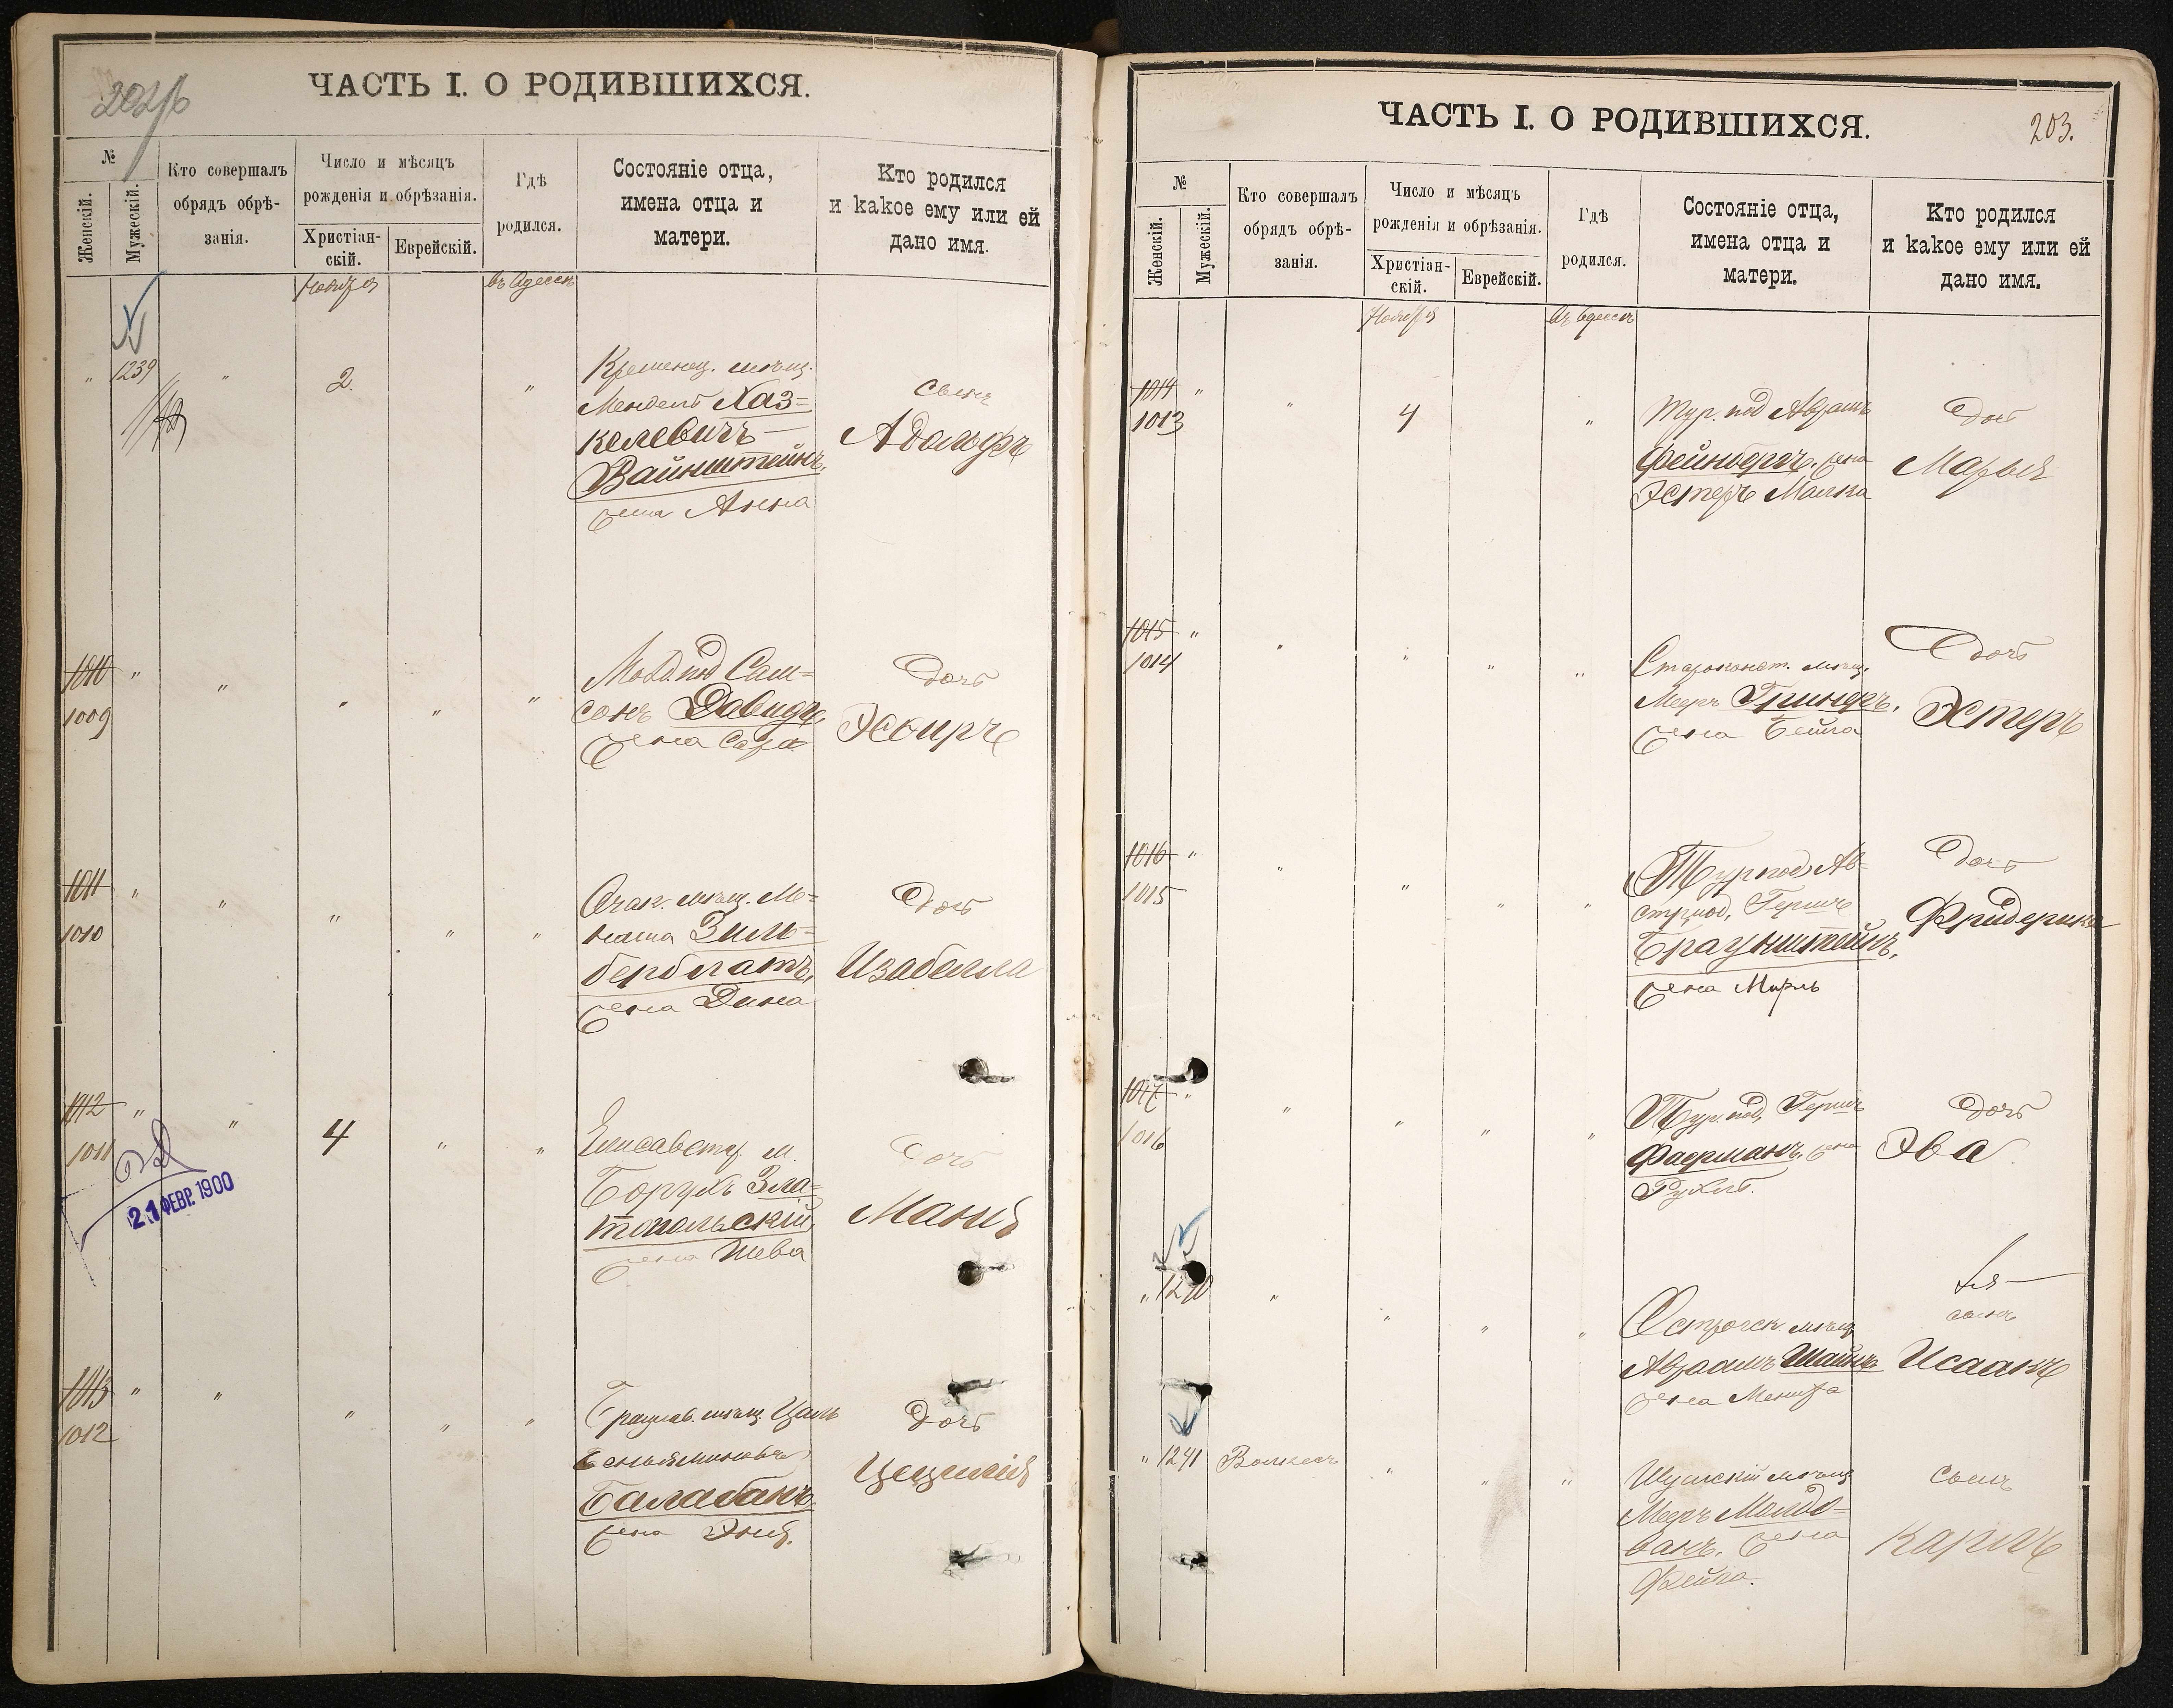 202/б
ЧАСТЬ I. О РОДИВШИХСЯ.
№
Женскій.
Мужескій.
Кто совершалъ
обрядъ обрѣ-
занія.
Число и мѣсяцъ
рожденія и обрѣзанія.
Христіан-
скій.
Еврейскій.
Гдѣ
родился.
Состояніе отца,
имена отца и
матери.
Кто родился
и какое ему или ей
дано имя.
Ноября
въ Одессѣ
" 1239 " 2. "
Кременец. мѣщ.
Мендель Хаз=
келевичъ
Вайнштейнъ,
жена Анна
Сынъ
Адольфъ
1010 "
1009
" " " "
под Сам=
сонъ Давидъ,
жена Сара
Дочь
Эсѳирь
1011 "
1010
" " " "
Очак. мѣщ. Ме=
наша Зиль=
берблатъ,
жена Дина
Дочь
Изабелла
1012 "
1011
" 4 " "
21 ФЕВР. 1900
Елисаветг. м.
Борухъ Зла=
топольскій,
жена Шева
Дочь
Маня
1013 " "
1012
" " "
Брацлав. мѣщ.
Беньяминовъ
Балабанъ
жена Эня.
Дочь
Цецилія
ЧАСТЬ I. О РОДИВШИХСЯ.
203.
№
Женскій.
Мужескій.
Кто совершалъ
обрядъ обрѣ-
занія.
Число и мѣсяцъ
рожденія и обрѣзанія.
Христіан-
скій.
Еврейскій.
Гдѣ
родился.
Состояніе отца,
имена отца и
матери.
Кто родился
и какое ему или ей
дано имя.
Ноября
въ Одессѣ
1014 "
1013
" 4 "
Тур. под Абрамъ
Фейнбергъ, жена
Эстеръ Малка
Дочь
Марья
1015 "
1014
" " " "
Староконст. мѣщ.
Мееръ Гринеръ,
жена Бейла
Дочь
Эстеръ
1016 "
1015
" " " "
Тур под Ав=
стр под, Гершъ
Браунштейнъ,
жена Мирль
Дочь
Фридерика
1017 "
1016
" " " "
Тур. под, Гершъ
Фаерманъ, жена
Рухль.
Дочь
Эва
" 1240 " " " "
Острогск. мѣщ
Абрамъ Шайнъ
жена
сынъ
Исаакъ
" 1241 " " "
Шумскій мѣщ
Мееръ Молдо=
ванъ, жена
Фейга.
Сынъ
Карлъ